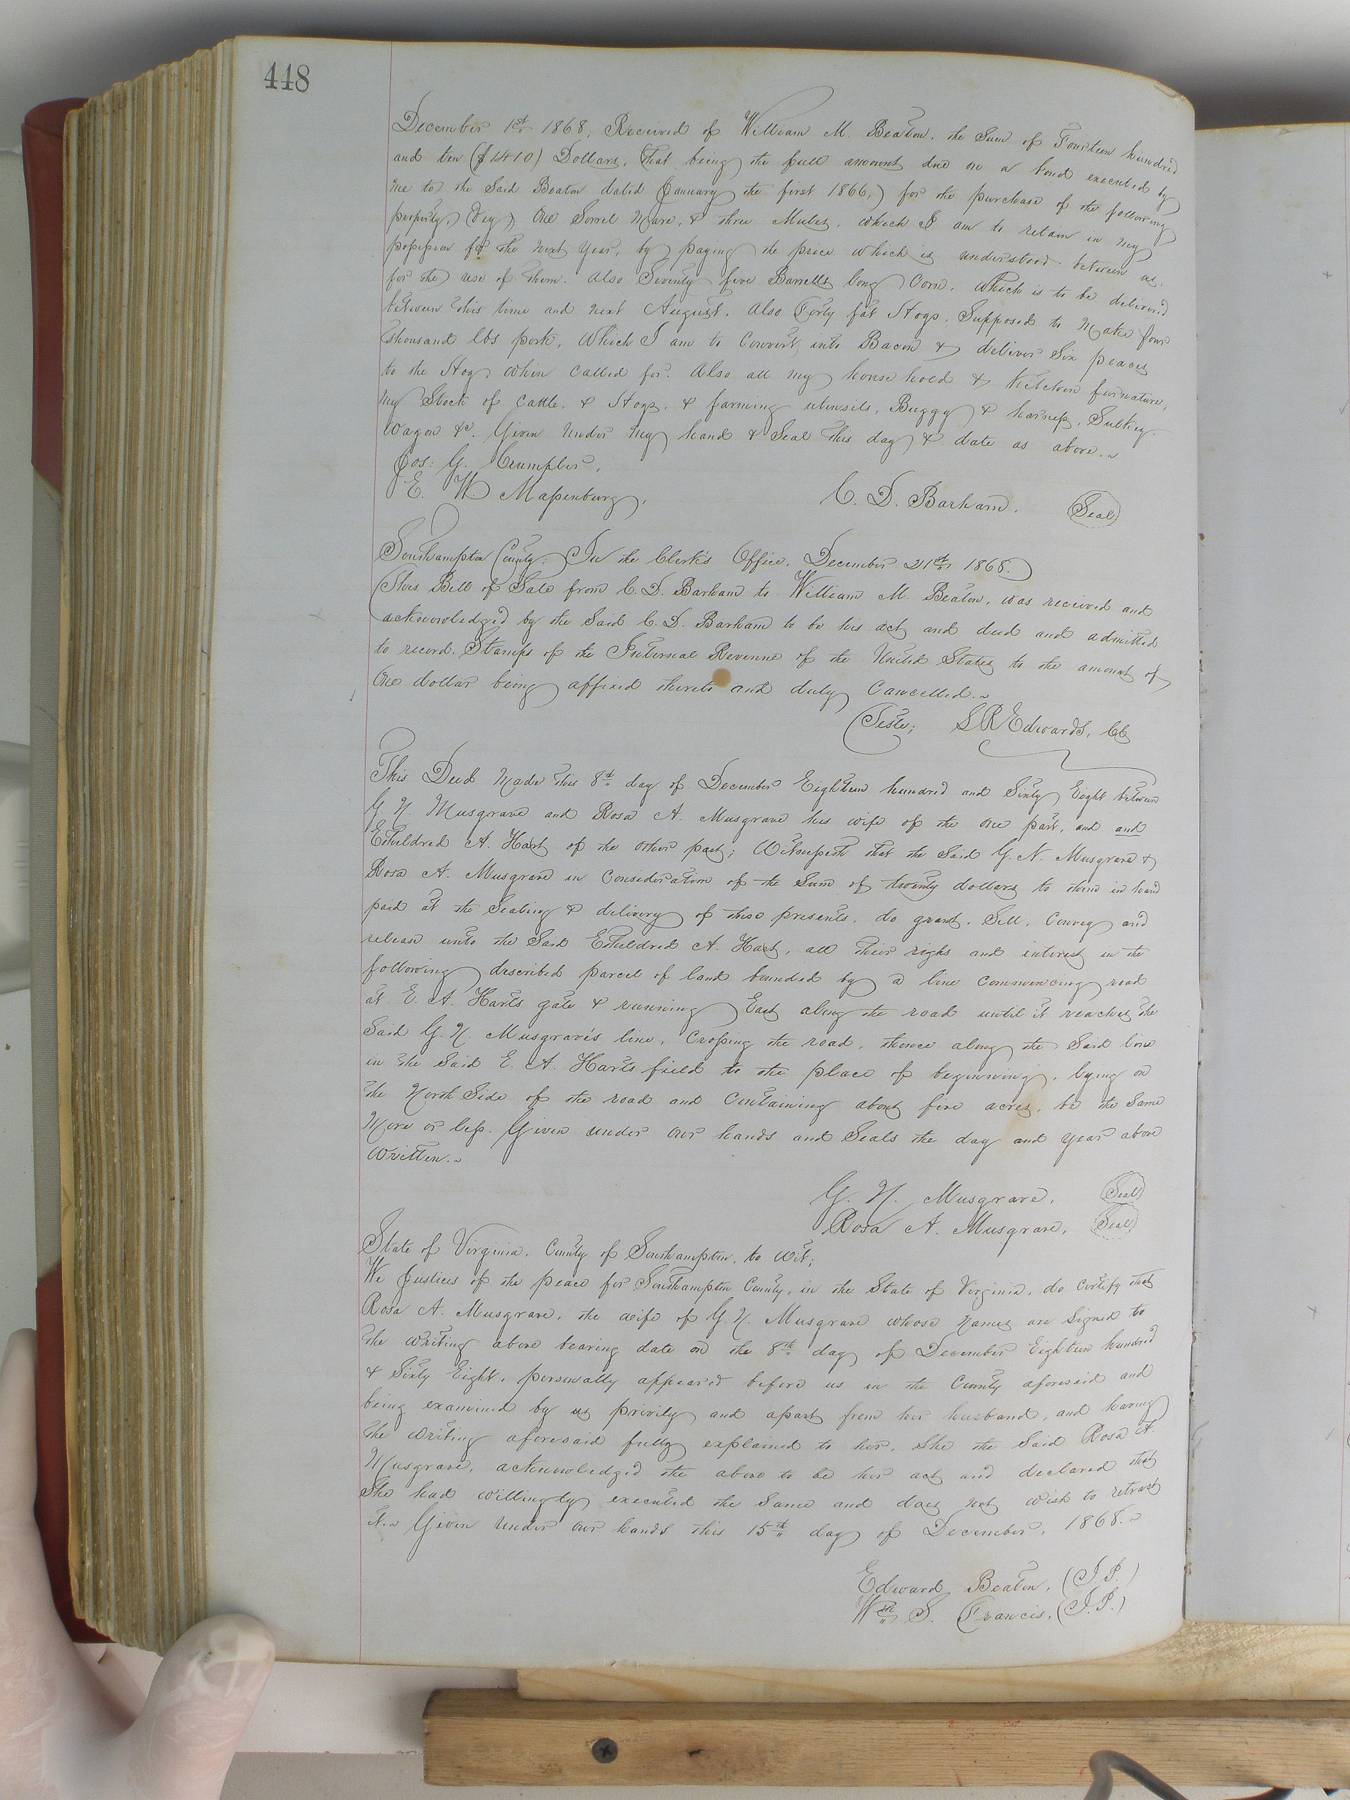 448
December 1st 1868, Received of William M. Beaton, the Sum of Fourteen hundred
and ten ($1410) Dollars, (that being the full amount due on a bond executed by
me to the Said Beaton dated January the first 1866,) for the purchase of the following
property, (viz), One Sorrel Mare, & three Mules, which I am to retain in my
possession for the next year, by paying the price which is understood between us,
for the use of them. Also Seventy five Barrells long Corn, which is to be delivered
between this time and next August. Also Forty fat Hogs, Supposed to make four
thousand lbs pork, Which I am to Convert into Bacon & deliver Six peaces
to the Hog when called for. Also all my house hold & Kitchen furnature,
My Stock of Cattle, & Hogs, & farming utensils, Buggy & harness, Sulkey
Wagon &c. Given Under my hand & Seal this day & date as above.
Jos: G. Crumpler,
E. W Massenburg,
C. D. Barham. (Seal)
Southampton County: In the Clerk's Office, December 21st 1868.
This Bill of Sale from C. D. Barham to William M. Beaton, was received and
acknowledged by the Said C. D. Barham to be his act and deed and admitted
to record, Stamps of the Internal Revenue of the United States to the amount of
One dollar being affixed thereto and duly Cancelled.
Teste; L R Edwards, CC
This Deed Made this 8th day of December Eighteen hundred and Sixty Eight between
G. N. Musgrave and Rosa A. Musgrave his wife of the one part, and and
Etheldred A. Hart of the other part; Witnesseth that the Said G. N. Musgrave &
Rosa A. Musgrave in Consideration of the Sum of twenty dollars to them in hand
paid at the Sealing & delivery of these presents, do grant, Sell, Convey and
release unto the Said Etheldred A. Hart, all their right and interest in the
following described parcel of land bounded by a line Commencing road
at E. A. Harts gate & running East along the road until it reaches the
Said G. N. Musgrave's line, Crossing the road, thence along the Said line
in the Said E. A. Harts field to the place of beginning, lying on
the North Side of the road and Containing about five acres, be the Same
More or less. Given under our hands and Seals the day and year above
written.
G. N. Musgrave, (Seal)
Rosa A. Musgrave, (Seal)
State of Virginia, County of Southampton, to Wit;
We Justices of the peace for Southampton County, in the State of Virginia, do Certify that
Rosa A. Musgrave, the wife of G. N. Musgrave whose Names are Signed to
the writing above bearing date on the 8th day of December Eighteen hundred
& Sixty Eight, personally appeared before us in the County aforesaid and
being examined by us privily and apart from her husband, and having
the writing aforesaid fully explained to her, She the Said Rosa A.
Musgrave, acknowledged the above to be her act and declared that
She had willingly executed the Same and does not wish to retract
it. Given Under our hands this 15th day of December, 1868.
Edward Beaton, (J. P.)
Wm S. Francis, (J. P.)